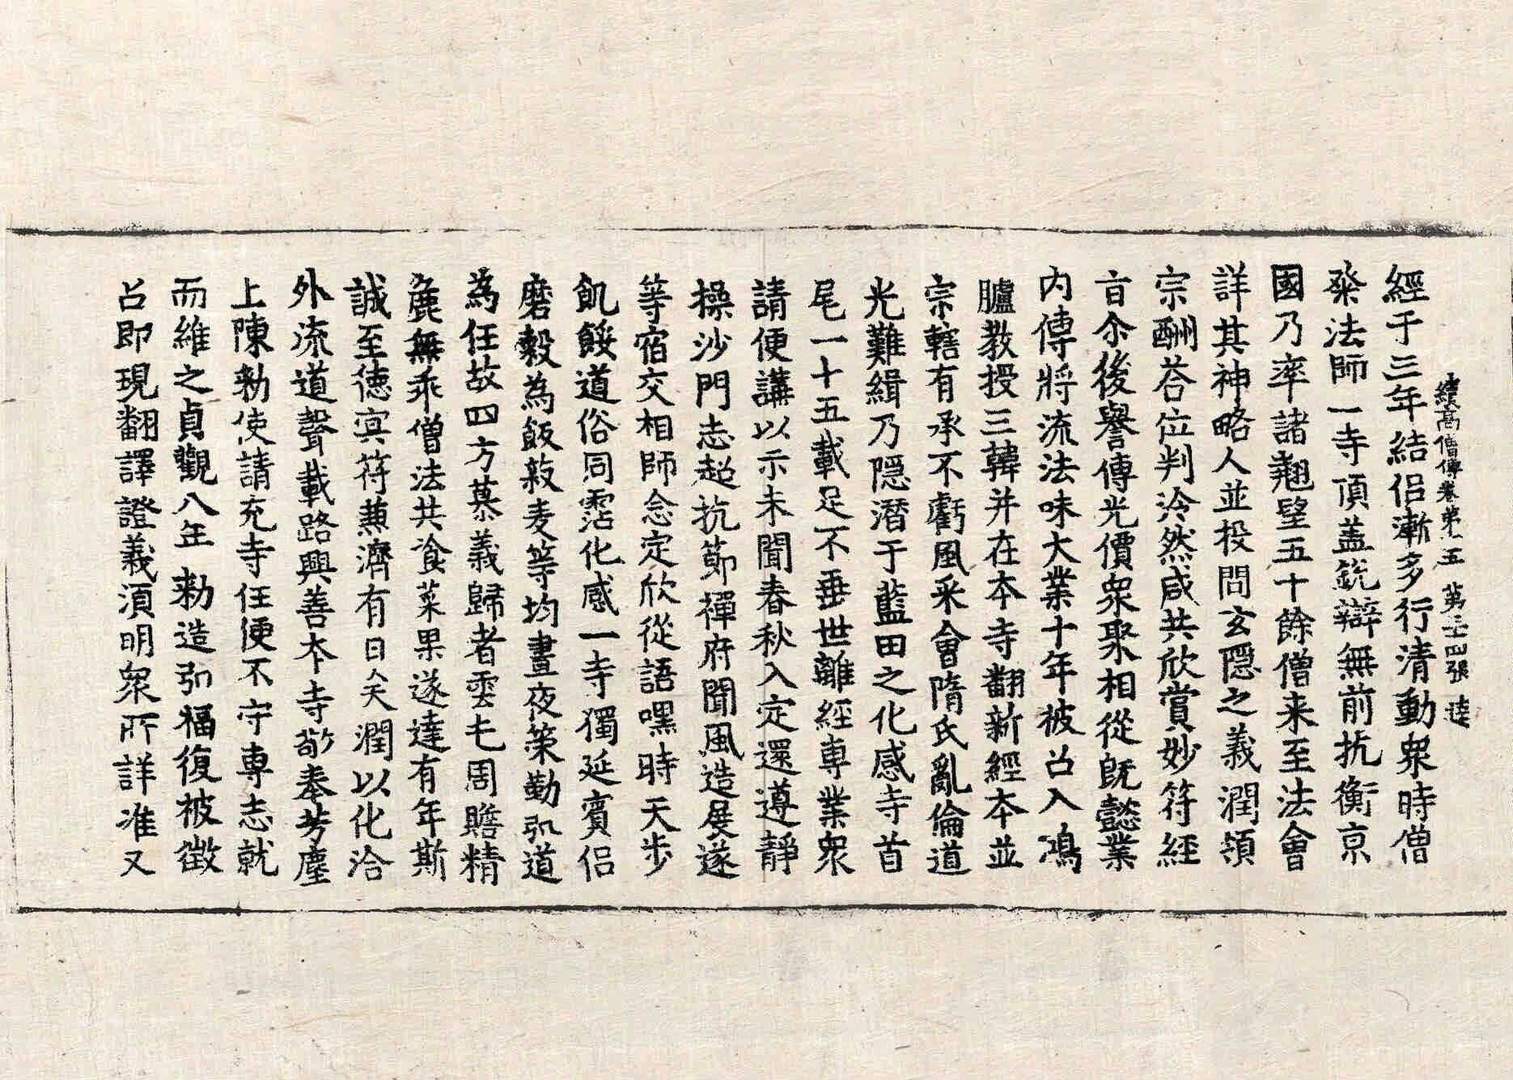 續高僧傳卷第十五 第三四張 達
經于三年結侶漸多行清動衆時僧
粲法師一寺頂盖銃辯無前抗衡京
國乃率諸翹望五十餘僧来至法會
詳其神略人並投問玄隱之義潤領
宗酬荅位判泠然咸共欣賞妙符經
旨尒後譽傳光價衆聚相從旣懿業
内傳將流法味大業十年被召入鴻
臚教授三韓并在本寺翻新經本並
宗轄有承不虧風采會隋氏亂倫道
光難緝乃隱潛于藍田之化感寺首
尾一十五載足不垂世離經專業衆
請便講以示未聞春秋入定還遵靜
操沙門志超抗節禪府聞風造展遂
等宿交相師念定欣從語嘿時天步
飢餒道俗同霑化感一寺獨延賓侶
磨穀為飯菽麦等均晝夜策勤弘道
為任故四方慕義歸者雲屯周贍精
麁無乖僧法共飡菜果遂達有年斯
誠至德冥符兼濟有日矣潤以化洽
外流道聲載路興善本寺敬奉芳塵
上陳勑使請充寺任便不守專志就
而維之貞觀八年勑造弘福復被徵
召即現翻譯證義須明衆所詳准又